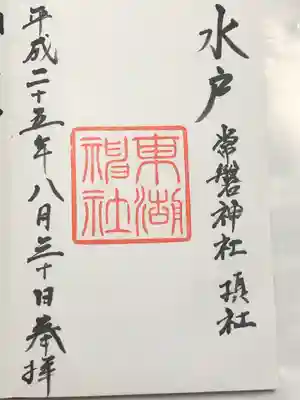 水戸
常磐神社 社
東湖
神社
平成二十五年八月三十日奉拝